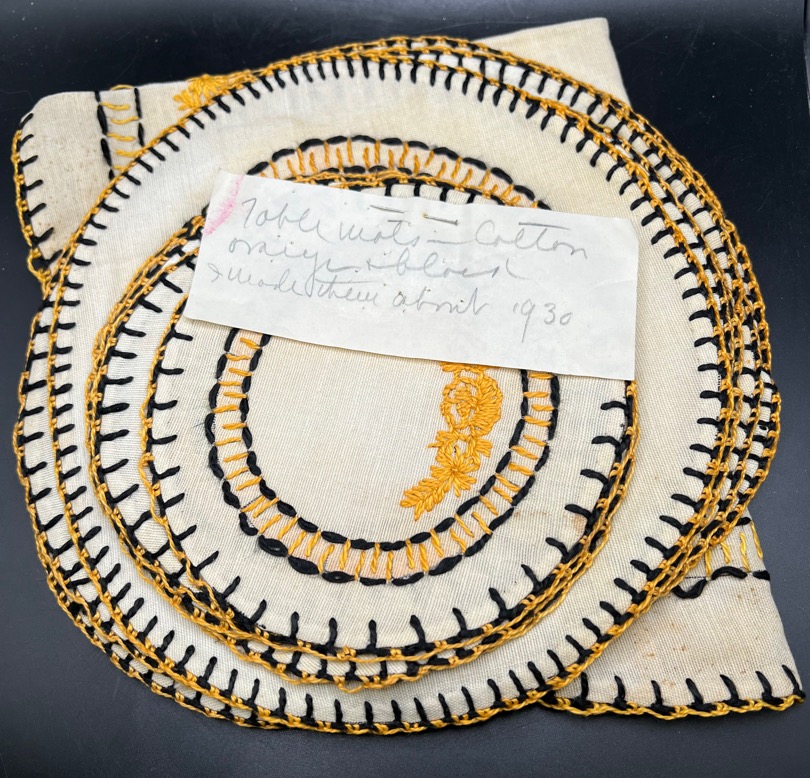 Table mats - Cotton
orange & black
I made them about 1930